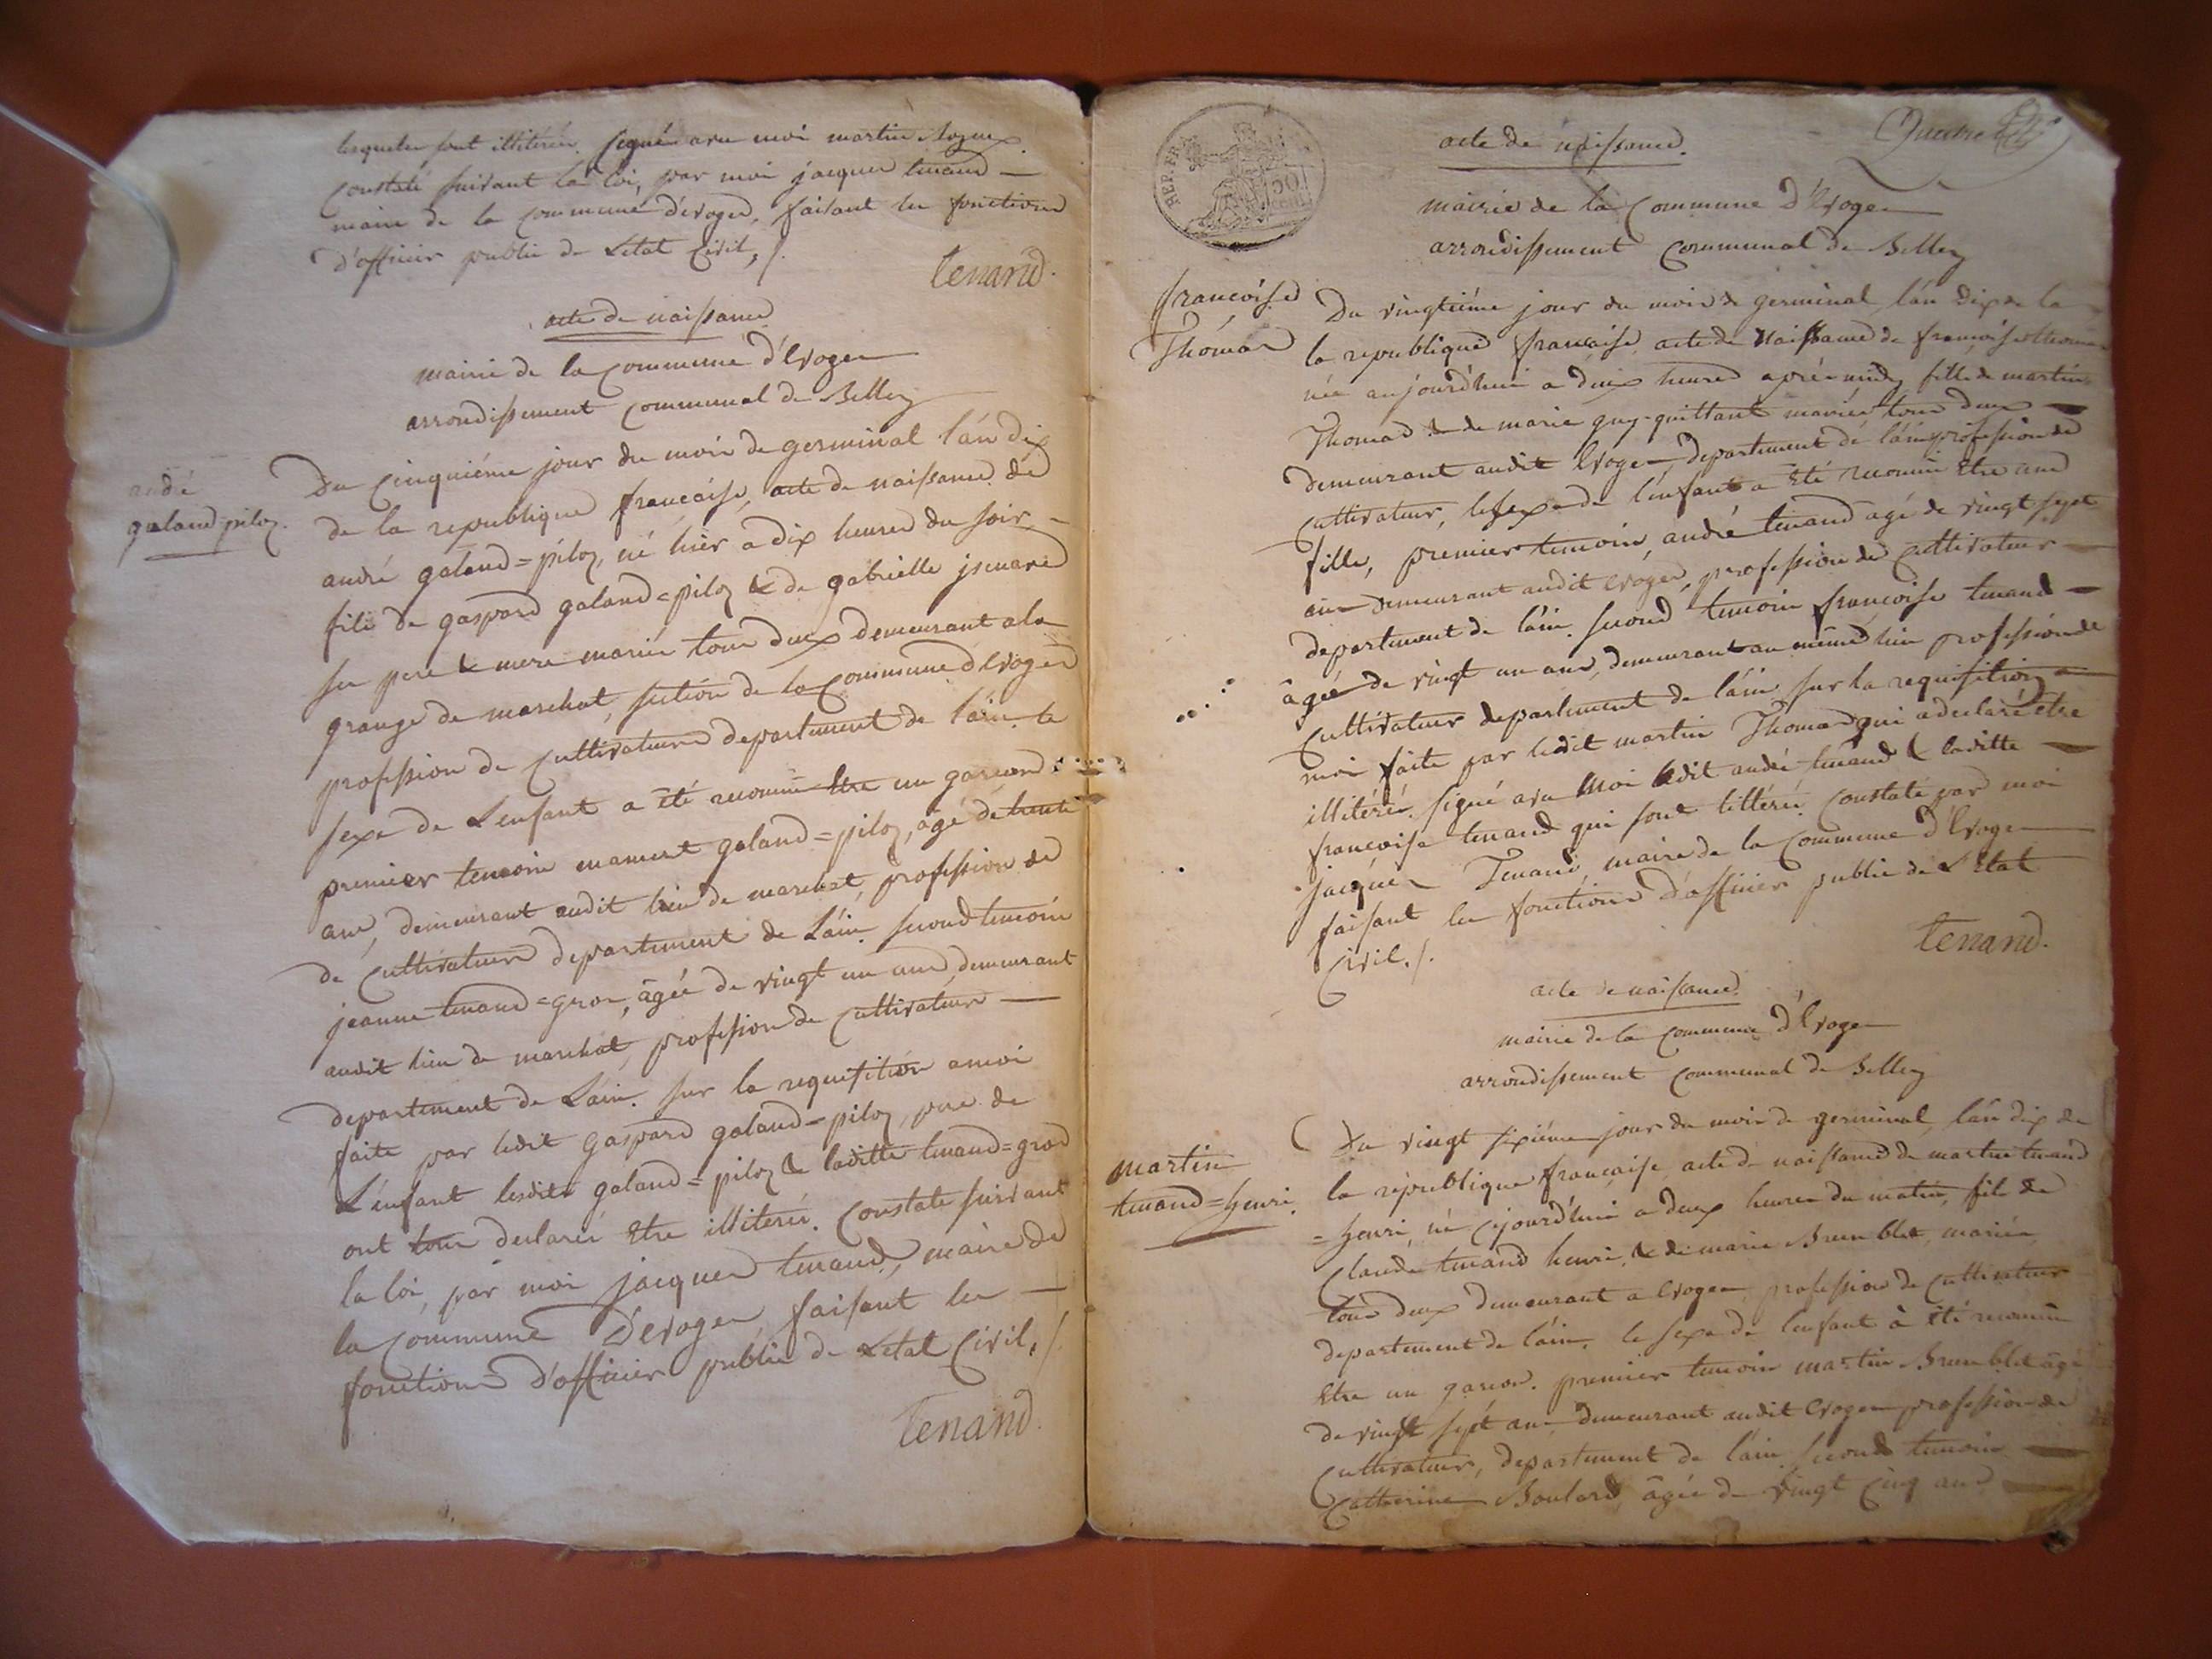 lesquels sont illitérés. signé avec moi martin
constaté suivant la loi, par moi jacques tenand
maire de la commune d'évoges, faisant les fonctions
d'officier public de L'etat Civil ./.
tenand.
acte de naissance
mairie de la Commune d'Evoges
arrondissement Communal de Belley
andré
galand piloz.
Du Cinquiéme jour du mois de germinal l'an dix
de la republique française, acte de naissance de
andré galand=piloz, né hier a dix heures du soir
fils de gaspard galand=piloz & de gabrielle
ses pere & mere mariés tous deux demeurant a la
grange de marchat, section de la Commune d'Evoges
profession de Cultivateurs departement de l'ain. le
sexe de L'enfant a été reconnu être un garcond.
premier temoin mamert galand=piloz, agé de trente
ans, demeurant audit lieu de marchat, profession de
de Cultivateurs departement de L'ain. second temoin
jeanne tenand=gros, âgée de vingt un ans, demeurant
audit lieu de marchat, profession de Cultivateurs
departement de L'ain. sur la requisition a moi
faite par ledit gaspard galand=piloz, pere de
L'enfant lesdits galand=piloz & laditte tenand=gros
ont tous declarés être illiterés. Constaté suivant
la loi, par moi jacques tenand, maire de
la Commune D'evoges faisant les
fonctions d'officier public de L'etat Civil, ./.
tenand.
Quatre
REP. FR.
50
acte de naissance.
mairie de la Commune d'Evoges
arrondissement Communal de Belley
françoise
Thomas
Du vingtiéme jour du mois de germinal l'an dix de la
la republique française, acte de naissance de françoise thomas
née aujourd'hui a deux heures aprés midy fille de martin
Thomas & de marie guy-quittant mariés tous deux
demeurant audit Evoges, departement de l'ain profession de
Cultivateur, le sexe de l'enfant a été reconnu être une
fille, premier temoin, andré tenand agé de vingt sept
ans demeurant audit evoges, profession de Cultivateur
departement de l'ain. second temoin françoise tenand
âgée de vingt un ans, demeurant au même lieu profession de
Cultivateur departement de l'ain sur la requisition a
moi faite par ledit martin Thomas qui a declaré être
illitéré. signé avec Moi ledit andré tenand & laditte
françoise tenand qui sont littérés. Constaté par moi
jacques Tenand, maire de la Commune d'Evoges
faisant les fonctions d'officier public de L'Etat
Civil ./.
tenand.
acte de naissance.
mairie de la Commune d'Evoges
arrondissement Communal de Belley
martin
tenand=henri.
Du vingt sixiéme jour du mois de germinal, l'an dix de
la république française, acte de naissance de martin tenand
=henri, né cejourd'hui a deux heures du matin, fils de
Claude tenand henri, & de marie Brun blet, mariés,
tous deux demeurant a Evoges profession de Cultivateur
departement de l'ain. le sexe de l'enfant à été reconnu
être un garcon. premier temoin martin Brun blet âgé
de vingt sept ans demeurant audit Evoges profession de
Cultivateur, departement de l'ain second temoin
Catherine Boulard âgée de vingt Cinq ans